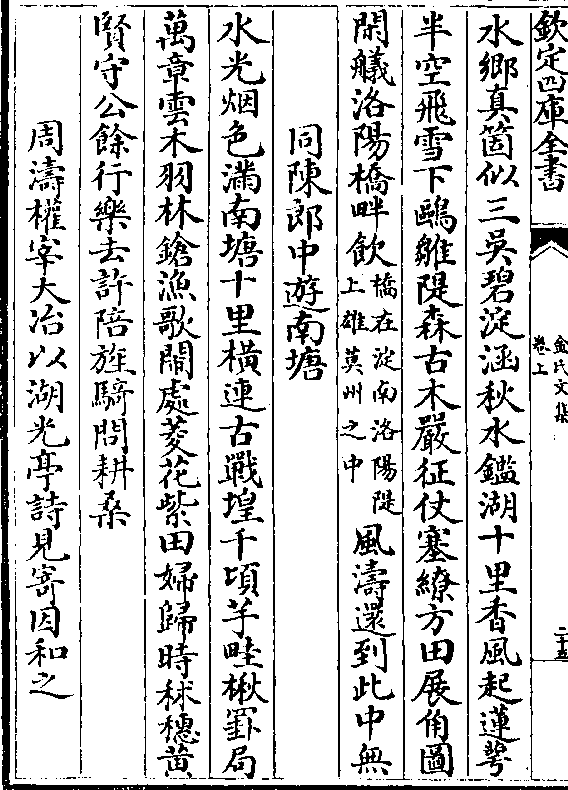 欽定四庫全書
金氏文集
卷上
二十五
水鄉真箇似三吳碧淀涵秋水鑑湖十里香風起蓮萼
半空飛雪下鷗雛隄森古木嚴征仗塞繚方田展角圖
閑艤洛陽橋畔飲橋在淀南洛陽隄上雄莫州之中風濤還到此中無
同陳郎中遊南塘
水光烟色滿南塘十里橫連古戰堭千頃芋畦楸罫局
萬章雲木羽林鎗漁歌鬧處菱花紫田婦歸時秫穗黃
賢守公餘行樂去許陪旌騎問耕桑
周濤權宰大冶以湖光亭詩見寄因和之